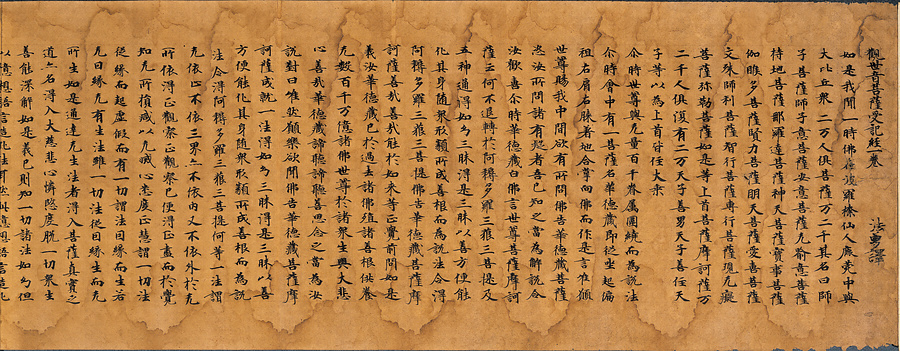 觀世音菩薩受記經一卷　法勇譯
如是我聞一時佛在波羅㮈仙人鹿苑中與
大比丘衆二万人俱菩薩万二千其名曰師
子菩薩師子意菩薩安意菩薩无喻意菩薩
持地菩薩那羅達菩薩神天菩薩寶事菩薩
伽睺多菩薩賢力菩薩明天菩薩愛喜菩薩
文殊師利菩薩智行菩薩專行菩薩現无礙
菩薩弥勒菩薩如是等上首菩薩摩訶薩万
二千人俱復有二万天子善男天子善住天
子等以為上首皆住大乘
尒時世尊與无量百千眷属圍繞而為說法
尒時會中有一菩薩名華德藏即從坐起偏
袒右肩右膝著地合掌向佛而作是言唯願
世尊賜我中間欲有所問佛告華德藏菩薩
恣汝所問諸有疑者吾已知之當為解說令
汝歡喜尒時華德藏白佛言世尊菩薩摩訶
薩云何不退轉於阿耨多羅三藐三菩提及
五神通得如幻三昧得是三昧以善方便能
化其身随衆形類所成善根而為說法令得
阿耨多羅三藐三菩提佛告華德藏菩薩摩
訶薩善哉善哉能於如來等正覺前問如是
義汝華德藏已於過去諸佛殖諸善根供養
无數百千万億諸佛世尊於諸衆生興大悲
心善哉華德藏諦聽諦聽善思念之當為汝
說對曰唯然願樂欲聞佛告華德藏菩薩摩
訶薩成就一法得如幻三昧得是三昧以善
方便能化其身随衆形類所成善根而為說
法令得阿耨多羅三藐三菩提何等一法謂
无依止不依三界亦不依内又不依外於无
所依得正觀察正觀察已便得正盡而於覺
知无所損減以无減心悉度正慧謂一切法
從緣而起虛假而有一切諸法因緣而生若
无因緣无有生法雖一切法從因緣生而无
所生如是通達无生法者得入菩薩真實之
道亦名得入大慈悲心憐愍度脫一切衆生
善能深解如是義已則知一切諸法如幻但